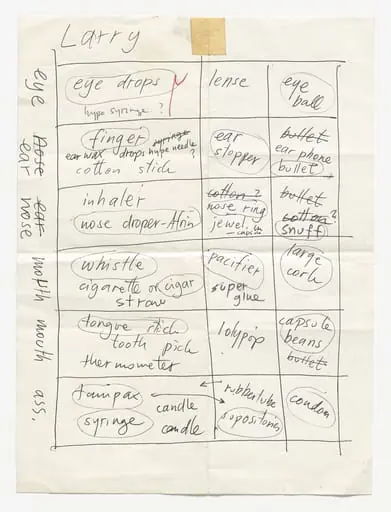 Larry
eye
eye drops
hypo syringe ?
lense
eye
ball
nose
ear
finger
syringe
ear wax drops hype needle ?
cotton stick
ear
stopper
bullet
ear phone
bullet
ear
nose
inhaler
nose droper-Afrin
cotton ?
nose ring
jewel.
bullet
cotton ?
snuff
mouth
whistle
cigarette or cigar
straw
pacifier
super
glue
large
cork
mouth
tongue stick
tooth pick
thermometer
lolypop
capsule
beans
bullet
ass.
tampax
syringe
candle
candle
rubber tube
supositories
condom